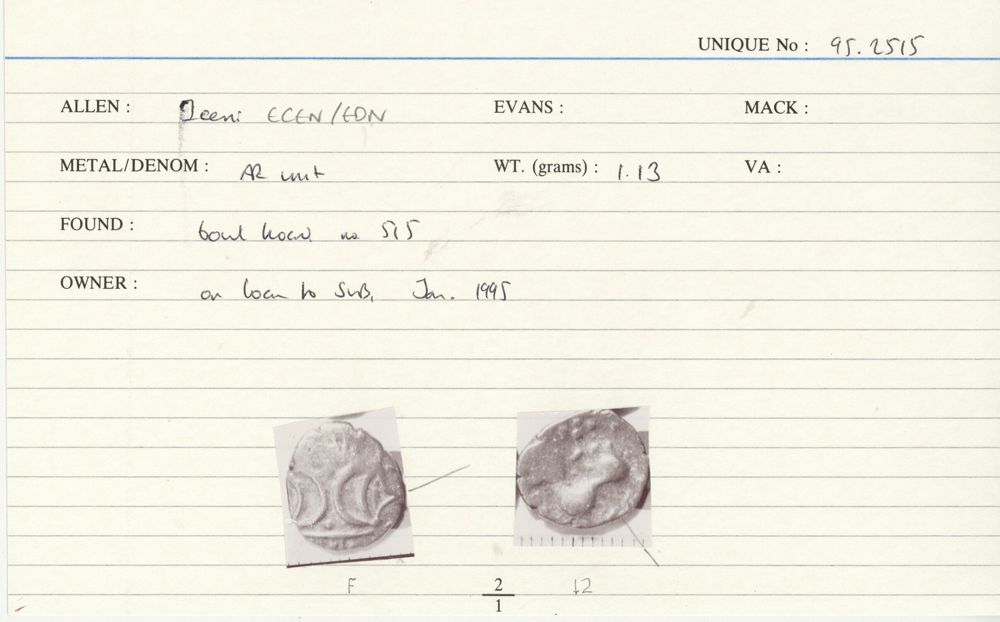 UNIQUE No : 95.2515
ALLEN : Iceni ECEN/EDN EVANS : MACK :
METAL/DENOM : AR unit WT. (grams) : 1.13 VA :
FOUND : bowl hoard no 515
OWNER : on loan to SWB, Jan. 1995
F 2/1 12